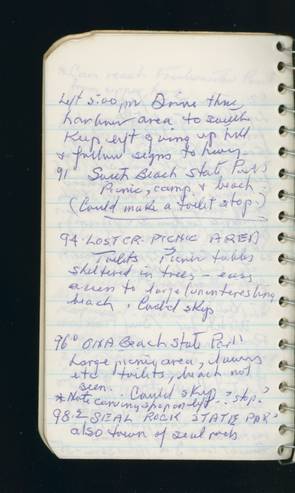 Left 3:00 pm Drive thru
harbour area to south
Keep left going up hill
& follow signs to hiway
91 South Beach State Park
Picnic, camp, & beach
(Could make a toilet stop)
94 LOST CR. PICNIC AREA
Toilets Picnic tables
sheltered in trees - easy
access to large uninteresting
beach. Could skip
96.0 ONA Beach State Park
Large picnic area, lawns
etc toilets, beach not
seen. Could skip ? stop?
*Note carving shop on left
98.2 SEAL ROCK STATE PAR
also town of seal rock